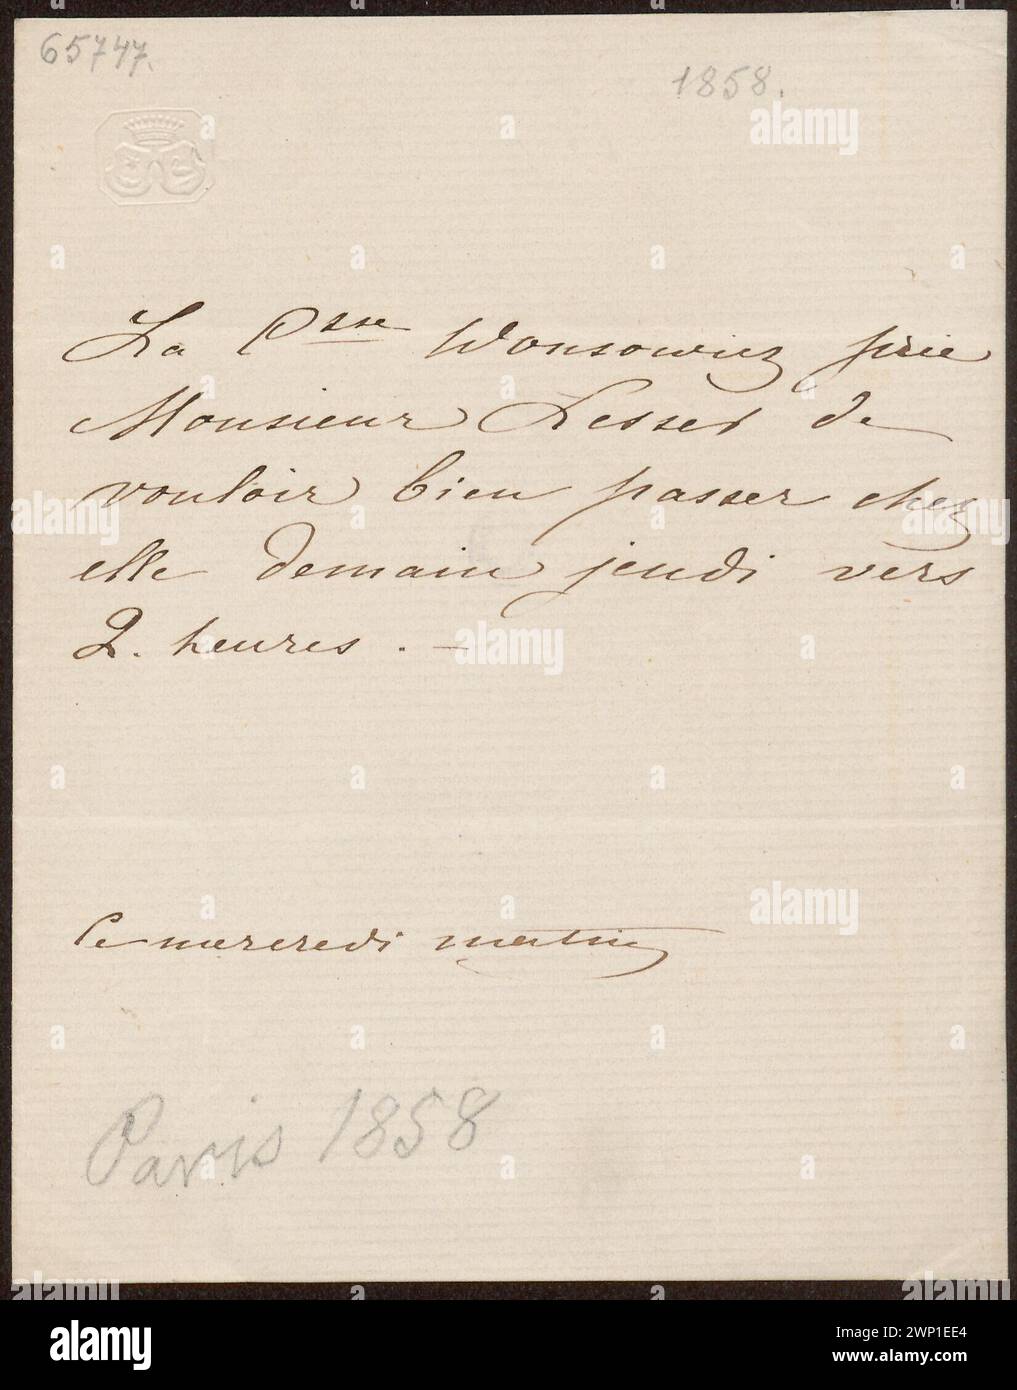 65747.
1858.
La Csse Wonsowicz prie
Monsieur Lesser de
vouloir bien passer chez
elle demain jeudi vers
2. heures . —
Ce mercredi matin
Paris 1858
alamy
Image ID: 2WP1EE4
www.alamy.com